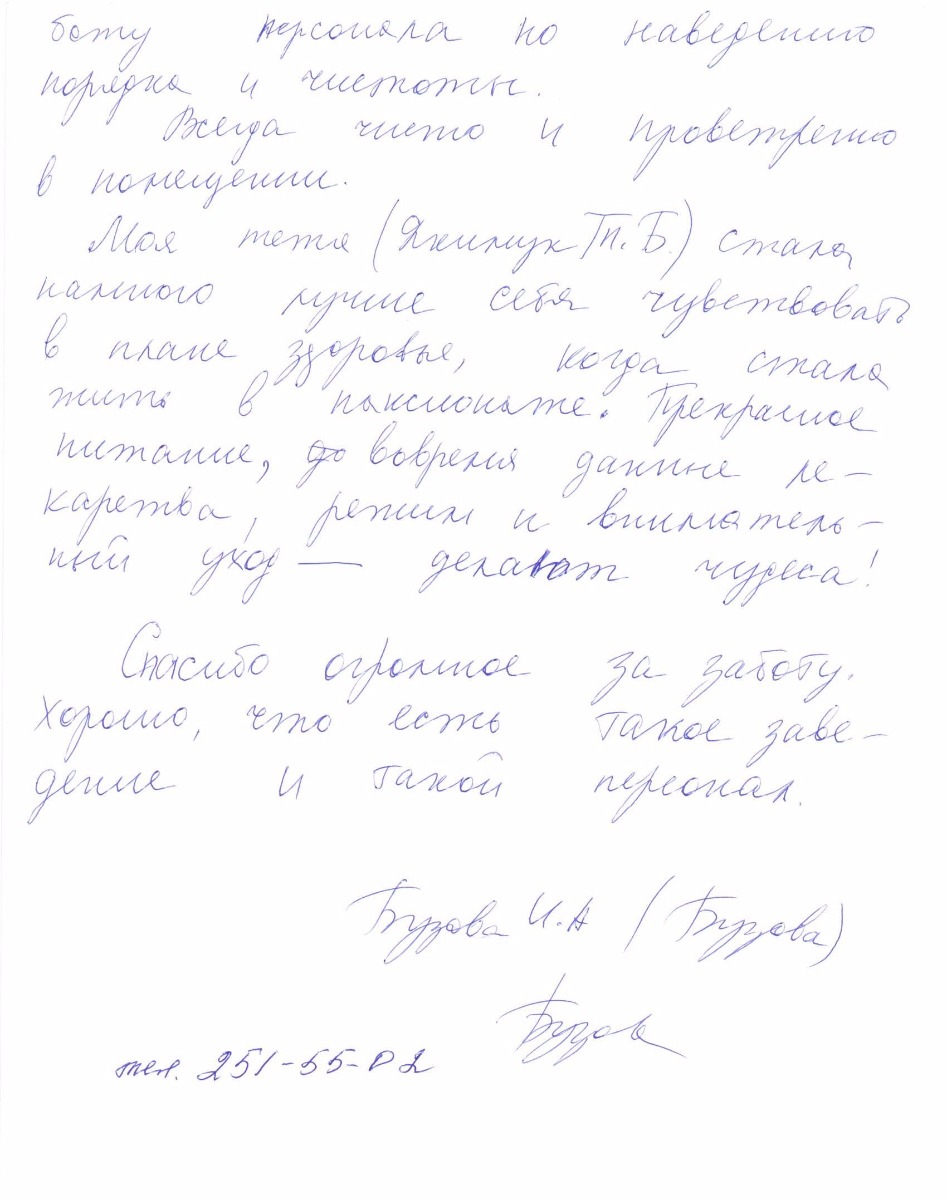 боту персонала по наведению
порядка и чистоты.
Всегда чисто и проветрено
в помещении.
Моя тетя (Якимук Т.Б.) стала
намного лучше себя чувствовать
в плане здоровье, когда стала
жить в пансионате. Прекрасное
питание, вовремя данные ле-
карства, режим и вниматель-
ный уход — делают чудеса!
Спасибо огромное за заботу.
Хорошо, что есть такое заве-
дение и такой персонал.
Бузова И.А (Бузова)
Бузова
тел. 251-55-02